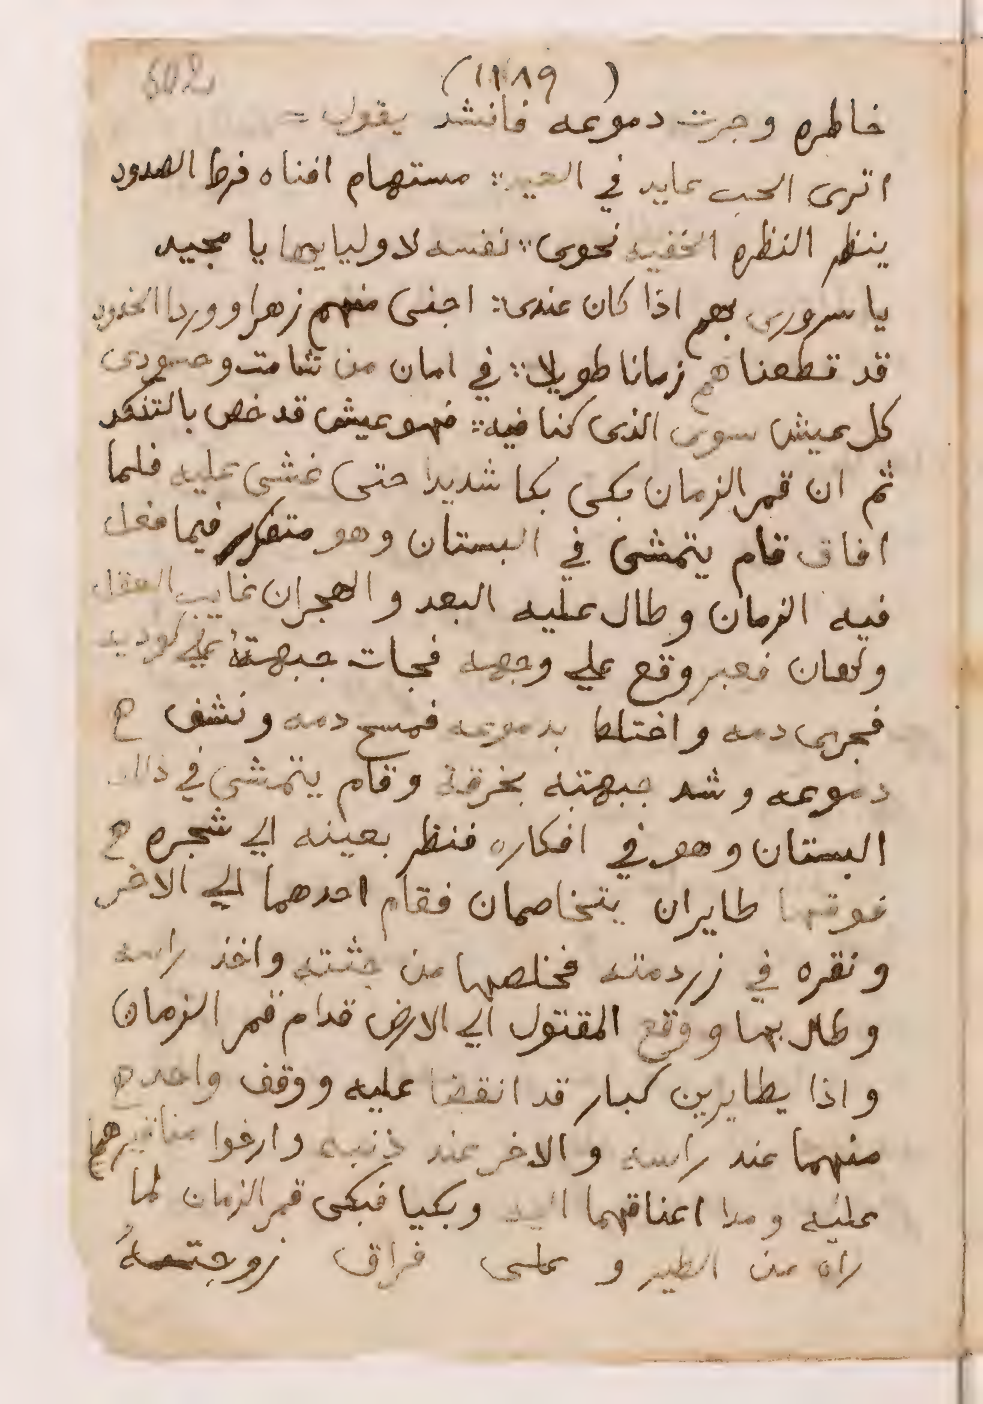 (١١٨٩)
خاطره وجرت دموعه فانشد يقول =
اترى الحب عايد في العيد :: مستهام افناه فرط الصدود
ينظر النظره الخفيه نحوى :: نفسه لاوليايها يا مجيد
يا سرورى بهم اذا كان عندى :: اجنى منهم زهرا ووردا الخدود
قد قطعنا هم زمانا طويلا :: في امان من شامت وحسودى
كل عيش سوى الذى كنا فيه :: فهو عيش قد خص بالتنكد
ثم ان قمر الزمان بكى بكا شديدا حتى غشى عليه فلما
افاق قام يتمشى في البستان وهو متفكر فيما فعل
فيه الزمان وطال عليه البعد والهجران غايب العقل
ولهان فعبر وقع علي وجهه فجات جبهته علي
فجرى دمه واختلط بدموعه فمسح دمه ونشف
دموعه وشد جبهته بخرقة وقام يتمشى في ذلك
البستان وهو في افكاره فنظر بعينه الي شجره
فوقها طايران يتخاصمان فقام احدهما الي الاخر
ونقره في زردمته فخلصها من جثته واخذ راسه
وطار بها ووقع المقتول الي الارض قدام قمر الزمان
واذا بطايرين كبار قد انقضا عليه ووقف واحد
منهما عند راسه والاخر عند ذنبه وارخوا مناقيرهم
عليه ومدا اعناقهما اليه وبكيا فبكى قمر الزمان لما
راه من الطير و على فراق زوجته